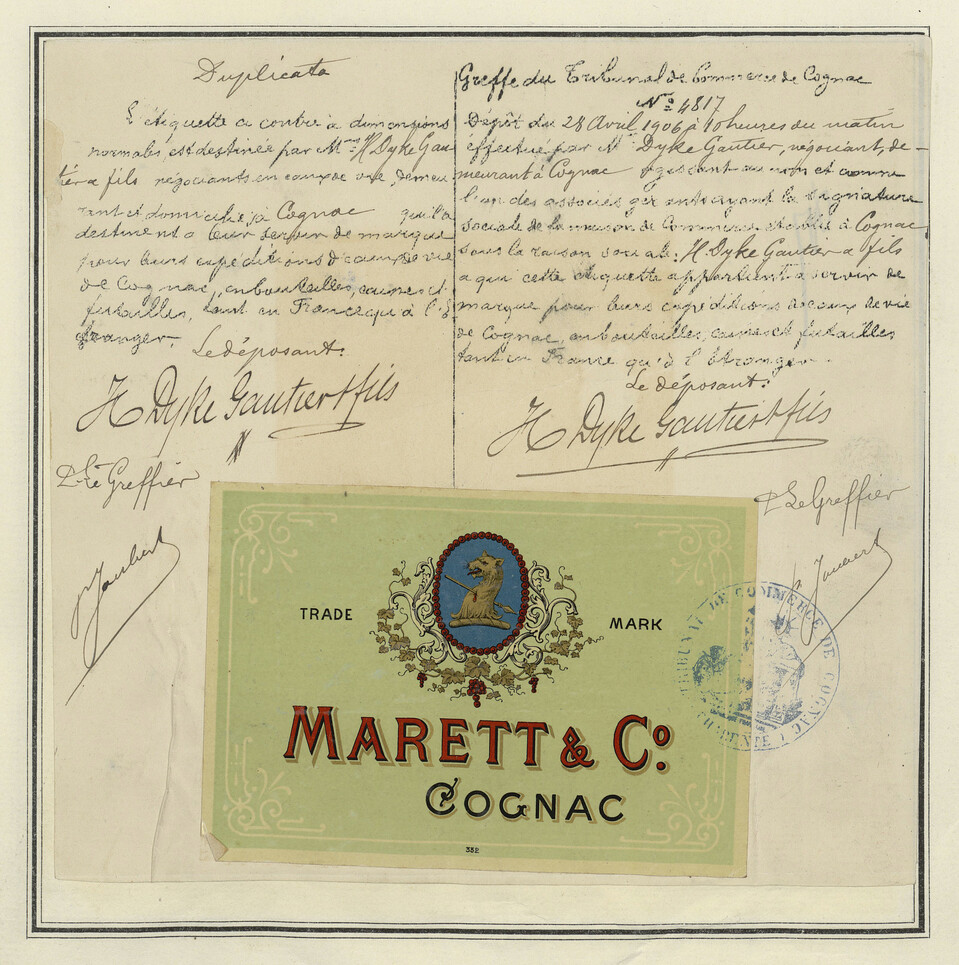 Duplicata
L'étiquette ci contre à dimensions
normales, est destinée par Mrs H Dyke Gau
tier & fils négociants en eaux de vie, demeu
rant et domiciliés à Cognac qui la
destinent a leur servir de marque
pour leurs expéditions d'eaux de vie
de Cognac, en bouteilles, caisses et
futailles, tant en France qu'à l'É
tranger.
Le déposant:
H Dyke Gautier & fils
Le Greffier
Joubert
Greffe du Tribunal de Commerce de Cognac
No 4817
Dépôt du 28 Avril 1906 à 10 heures du matin
effectué par Mr Dyke Gautier, négociant, de-
meurant à Cognac agissant au nom et comme
l'un des associés gérants ayant la signature
sociale de la maison de Commerce établie à Cognac
sous la raison sociale: H. Dyke Gautier & fils
a qui cette étiquette appartient à servir de
marque pour leurs expéditions de eaux de vie
de Cognac, en bouteilles, caisses et futailles
tant en France qu'à l'étranger.
Le déposant:
H Dyke Gautier & fils
Le Greffier
Joubert
TRADE MARK
MARETT & Co.
COGNAC
352
TRIBUNAL DE COMMERCE DE COGNAC
CHARENTE